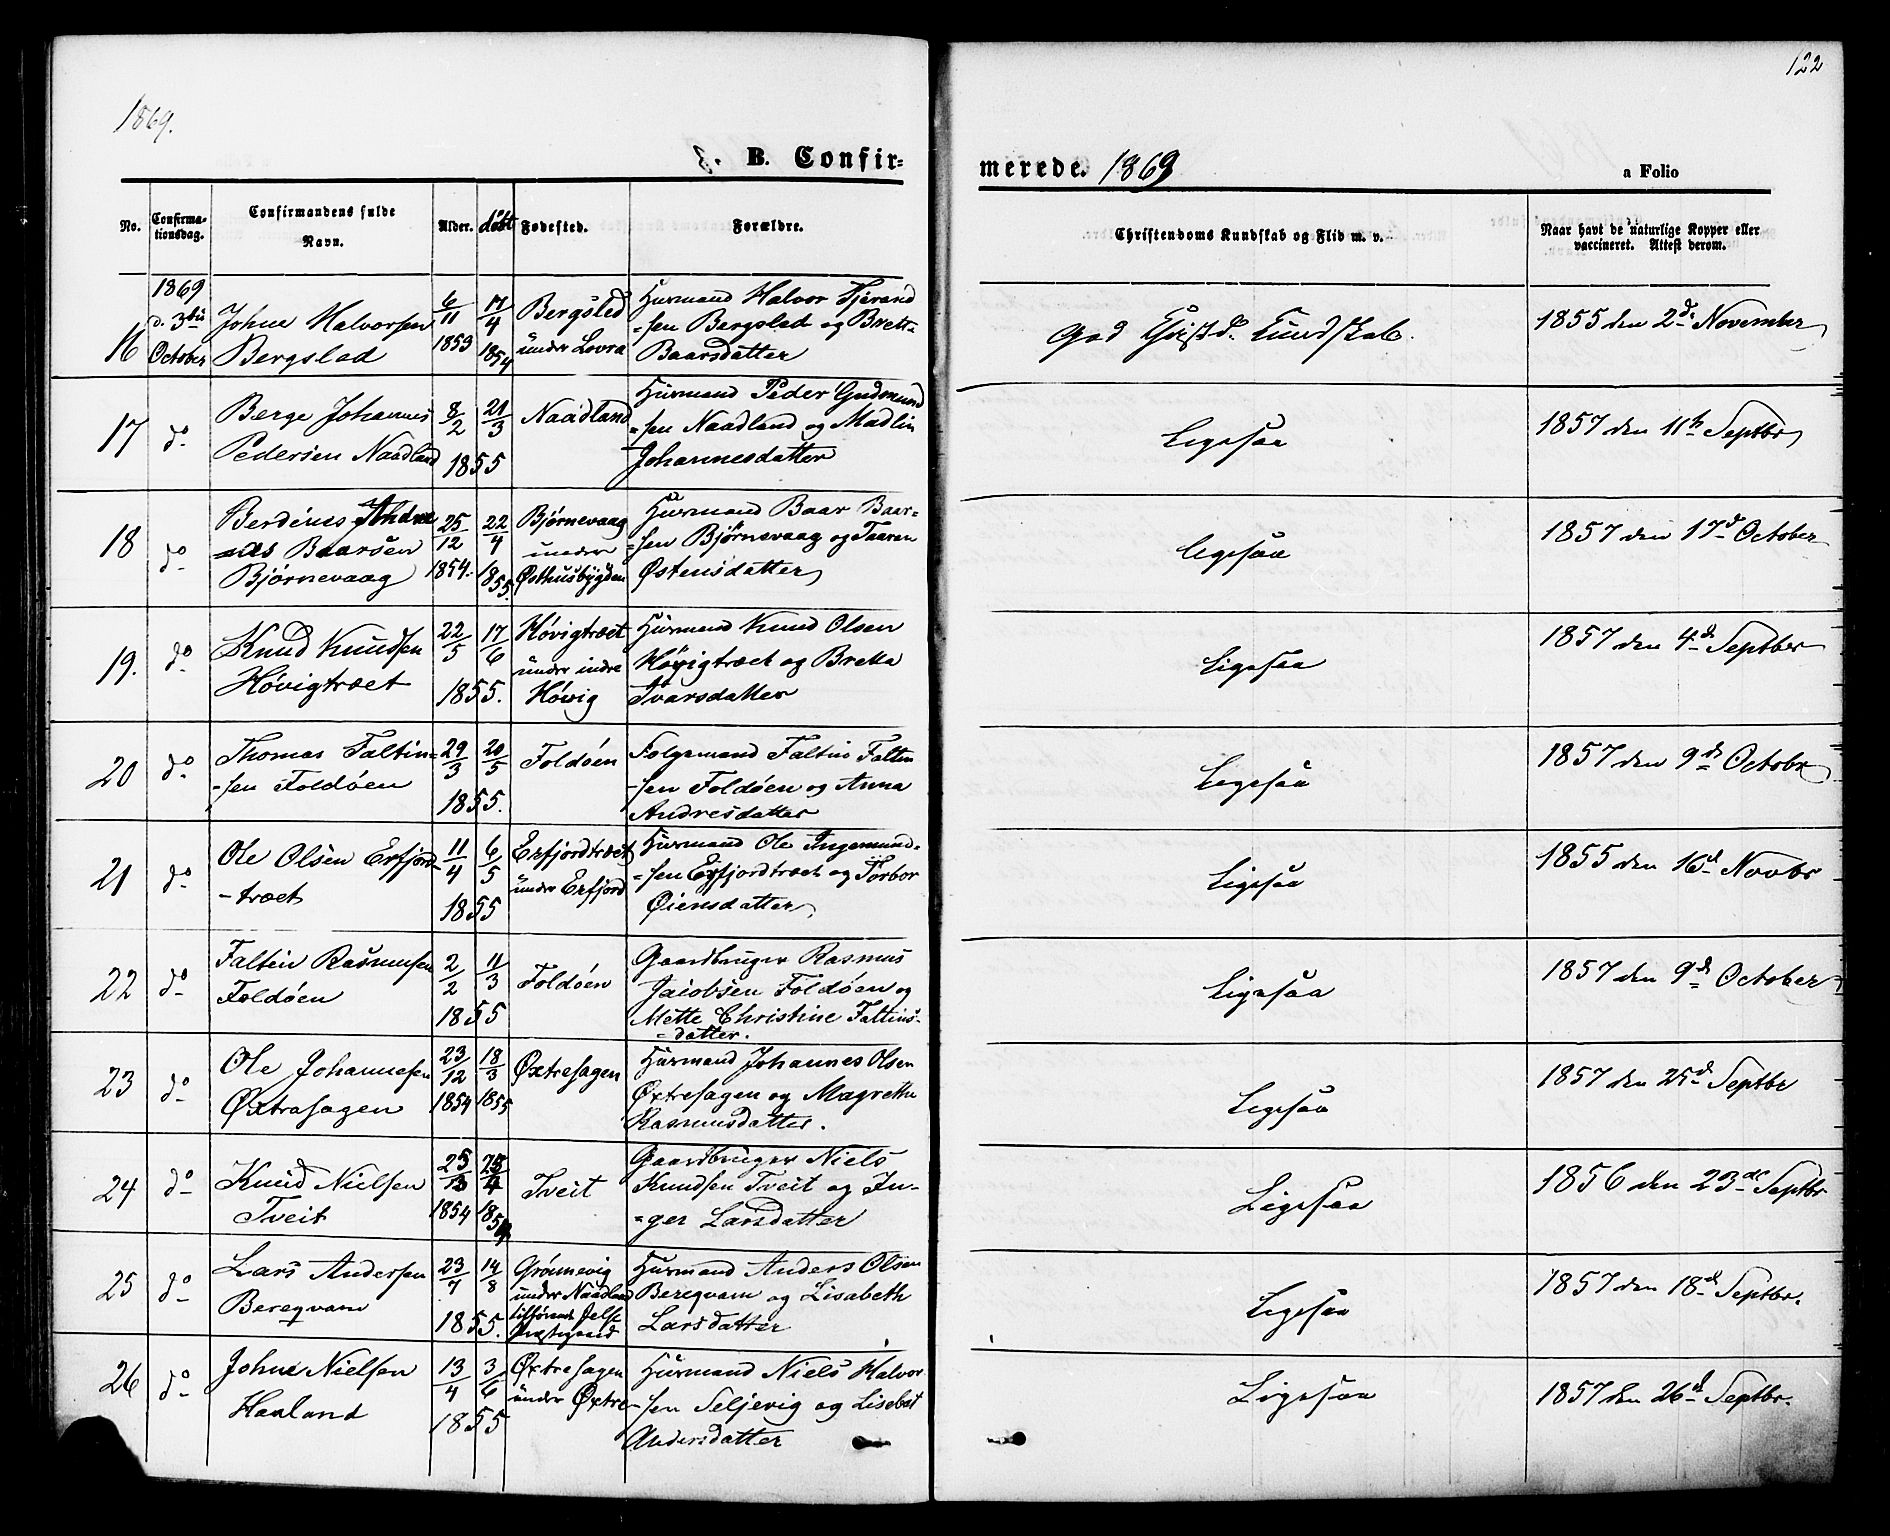 1869.
122
B. Confir-
merede. 1869
a Folio
No.
Confirma-
tionsdag.
Confirmandens fulde
Navn.
Alder.
døbt
Fødested.
Forældre.
Christendoms Kundskab og Flid m. v.
Naar havt de naturlige Kopper eller
vaccineret. Attest derom.
16
1869
d. 3die
October
Johne Halvorsen
Bergslad
6/11
1853
17/4
1854
Bergslad
under Lovra
Husmand Halvor Tjerand
-sen Bergslad og Brett-
Baarsdatter
God Christd. Kundskab.
1855 den 2d November
17
do
Berge Johannes
Pedersen Naadland
8/2
21/3
1855
Naadland
Husmand Peder Gudmund
-sen Naadland og Madlin
Johannesdatter
Ligesaa
1857 den 11te Septbr
18
do
Berdines
Baarsen
Bjørnevaag
25/12
1854.
22/4
1855.
Bjørnevaag
under
Østhusbygden
Husmand Baar Baar-
-sen Bjørnevaag og Taaren
Østensdatter
Ligesaa
1857 den 17d October
19.
do
Knud Knudsen
Høvigtræet
22/5
17/6
1855.
Høvigtræet
under indre
Høvig
Husmand Knud Olsen
Høvigtræet og Bretta
Ivarsdatter
Ligesaa
1857 den 4d Septber
20
do
Thomas Faltin-
-sen Foldøen
29/3
20/5
1855.
Foldøen
Folgemand Faltin Faltin
-sen Foldøen og Anna
Andresdatter
Ligesaa
1857 den 9d Octobr
21
do
Ole Olsen Erfjord-
-træet
11/4
6/5
1855
Erfjordtræet
under Erfjord
Husmand Ole Ingemund-
-sen Erfjordtræet og Torbor
Øiensdatter
Ligesaa
1855 den 16d Novbr
22
do
Faltin Rasmusen
Foldøen
2/2
11/3
1855
Foldøen
Gaardbruger Rasmus
Jacobsen Foldøen og
Mette Christine Faltins-
-datter.
Ligesaa
1857 den 9d October
23
do
Ole Johannesen
Øxtrasagen
23/12
1854
18/3
1855
Øxtresagen
Husmand Johannes Olsen
Øxtresagen og Magrethe
Rasmusdatter.
Ligesaa
1857 den 25d Septbr
24
do
Knud Nielsen
Tveit
1854
Tveit
Gaardbruger Niels
Knudsen Tveit og In-
-ger Larsdatter
Ligesaa
1856 den 23de Septbr
25
do
Lars Andersen
Bereqvam
23/7
14/8
1855.
Grønnevig
under Naadland
tilhørende Jelse
Præstegaard
Husmand Anders Olsen
Bereqvam og Lisabeth
Larsdatter
Ligesaa
1857 den 18d Septbr.
26
do
Johne Nielsen
Haaland
13/4
3/6
1855
Øxtresagen
under Øxtre
Husmand Niels Halvor
-sen Seljevig og Lisebet
Andersdatter
Ligesaa
1857 den 26d Septbr.